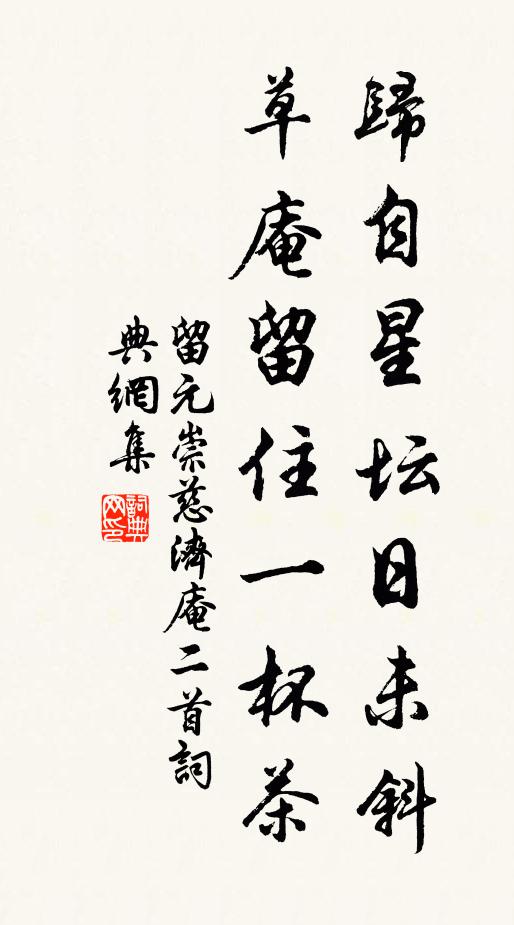 歸自星坛日未斜
草庵留住一杯茶
留元崇慈濟庵二首詞
典網集
詞典
网印